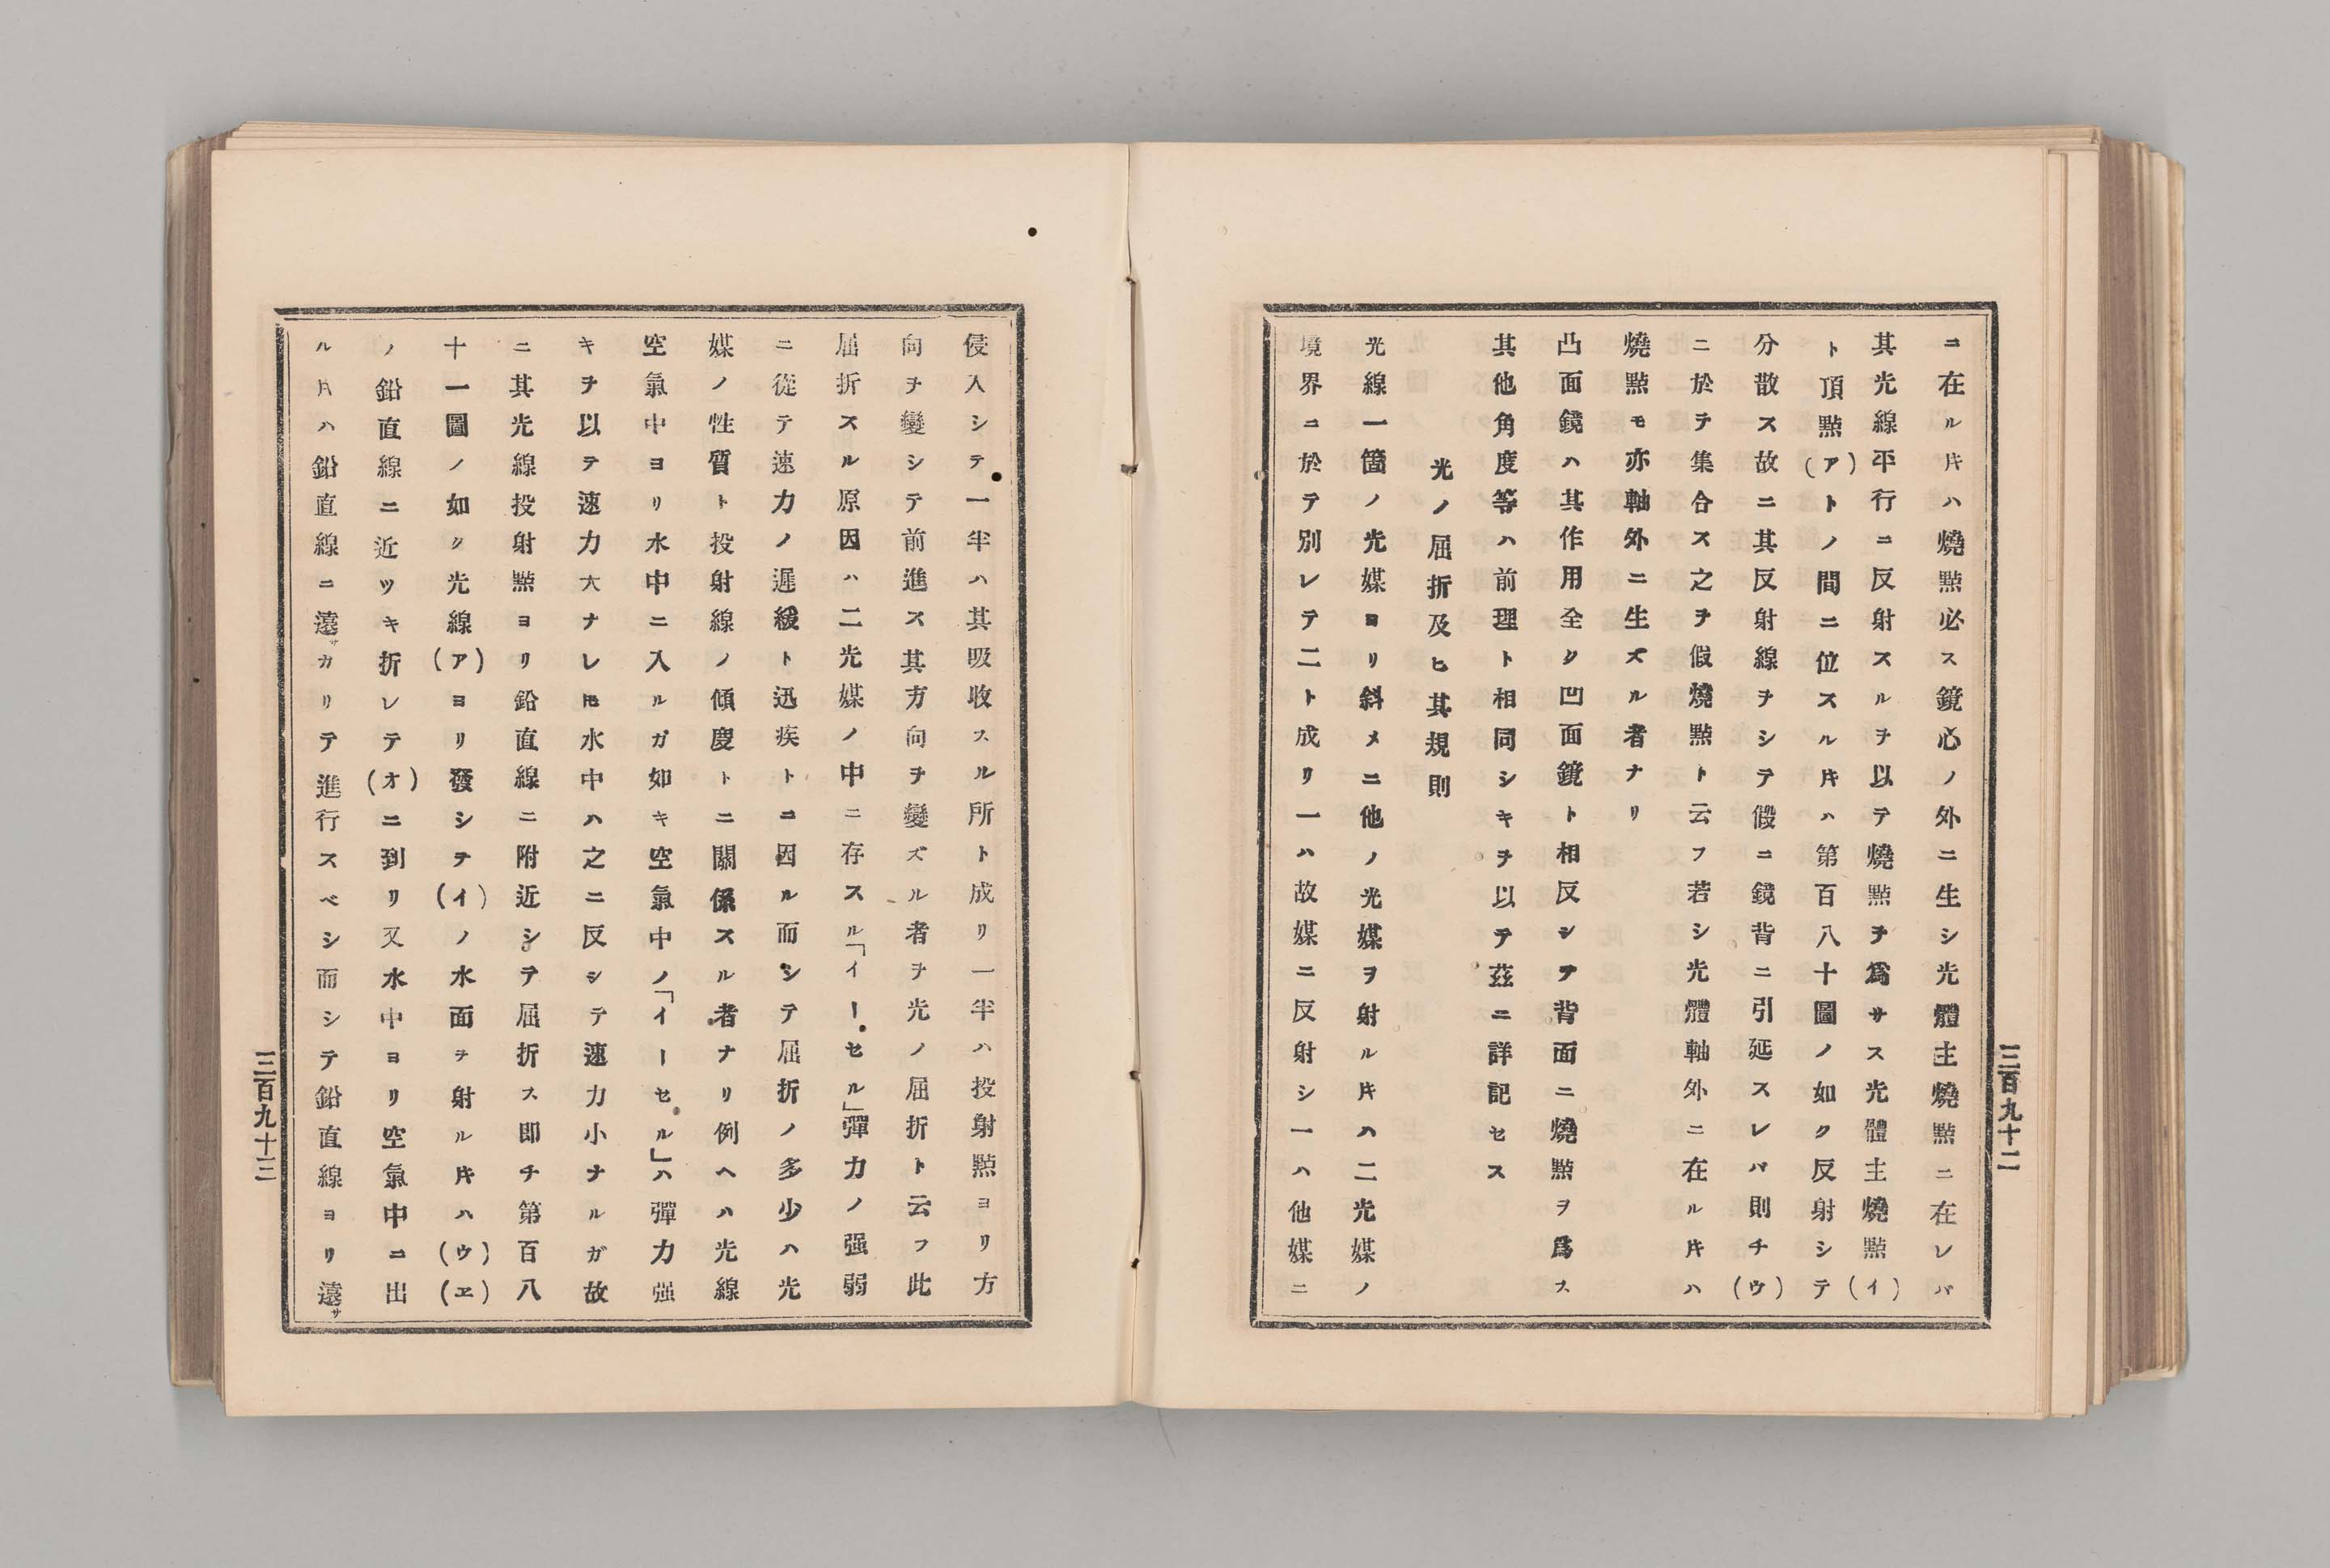 ニ在ル𪜈ハ燒點必ス鏡心ノ外ニ生シ光體主燒點ニ在レバ
其光線平行ニ反射スルヲ以テ燒點ヲ爲サス光體主燒點(イ)
ト頂點(ア)トノ間ニ位スル𪜈ハ第百八十圖ノ如ク反射シテ
分散ス故ニ其反射線ヲシテ假ニ鏡背ニ引延スレバ則チ(ウ)
ニ於テ集合ス之ヲ假燒點ト云フ若シ光體軸外ニ在ル𪜈ハ
燒點モ亦軸外ニ生ズル者ナリ
凸面鏡ハ其作用全ク凹面鏡ト相反シテ背面ニ燒點ヲ爲ス
其他角度等ハ前理ト相同シキヲ以テ茲ニ詳記セス
光ノ屈折及ヒ其規則
光線一箇ノ光媒ヨリ斜メニ他ノ光媒ヲ射ル𪜈ハ二光媒ノ
境界ニ於テ別レテ二ト成リ一ハ故媒ニ反射シ一ハ他媒ニ
三百九十二
侵入シテ一半ハ其吸收スル所ト成リ一半ハ投射點ヨリ方
向ヲ變シテ前進ス其方向ヲ變ズル者ヲ光ノ屈折ト云フ此
屈折スル原因ハ二光媒ノ中ニ存スル「イーセル」彈力ノ强弱
ニ從テ速力ノ遲緩ト迅疾トニ因ル而シテ屈折ノ多少ハ光
媒ノ性質ト投射線ノ傾度トニ關係スル者ナリ例ヘハ光線
空氣中ヨリ水中ニ入ルガ如キ空氣中ノ「イーセル」ハ彈力强
キヲ以テ速力大ナレ𪜈水中ハ之ニ反シテ速力小ナルガ故
ニ其光線投射點ヨリ鉛直線ニ附近シテ屈折ス即チ第百八
十一圖ノ如ク光線(ア)ヨリ發シテ(イ)ノ水面ヲ射ル𪜈ハ(ウ)(ヱ)
ノ鉛直線ニ近ツキ折レテ(オ)ニ到リ又水中ヨリ空氣中ニ出
ル𪜈ハ鉛直線ニ遠サカリテ進行スベシ而シテ鉛直線ヨリ遠サ
三百九十三